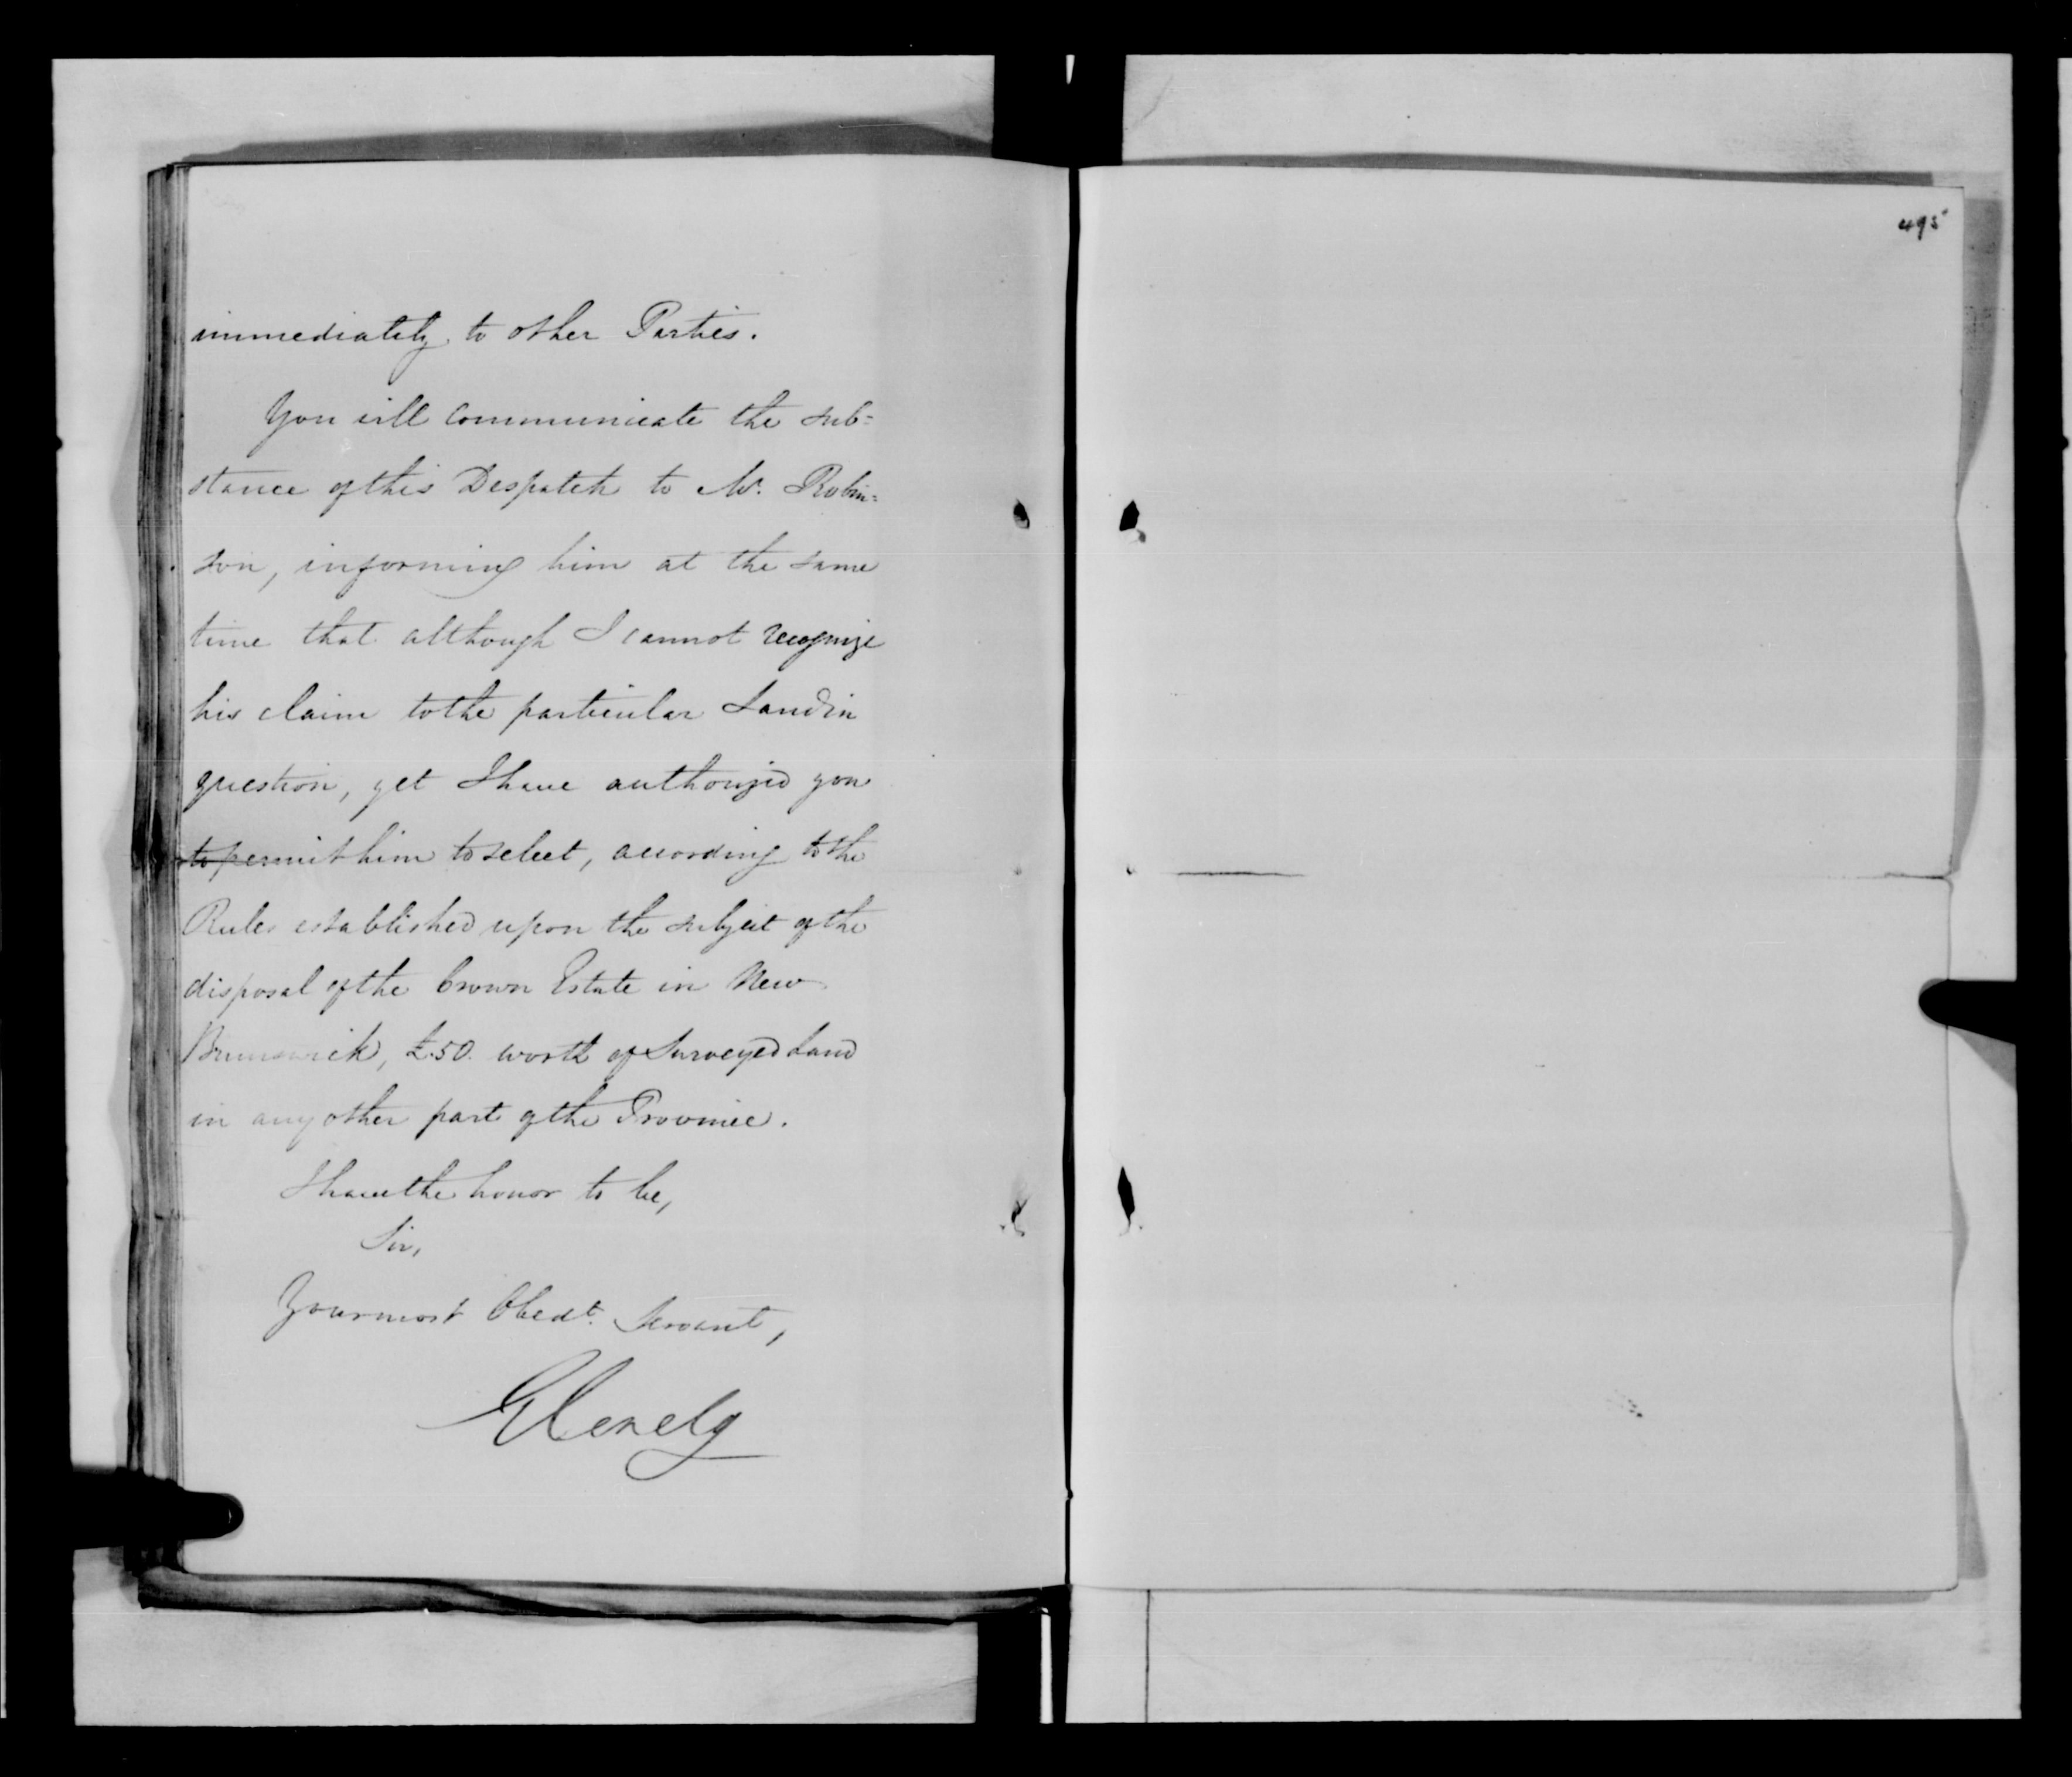 immediately to other Parties.
You will communicate the sub=
stance of this Despatch to Mr. Robin=
son, informing him at the same
time that although I cannot recognize
his claim to the particular Land in
question, yet I have authorized you
to permit him to select, according to the
Rules established upon the subject of the
disposal of the Crown Estate in New
Brunswick, £50. worth of Surveyed Land
in any other part of the Province.
I have the honor to be,
Sir,
Your most Obedt. Servant,
Glenelg
495